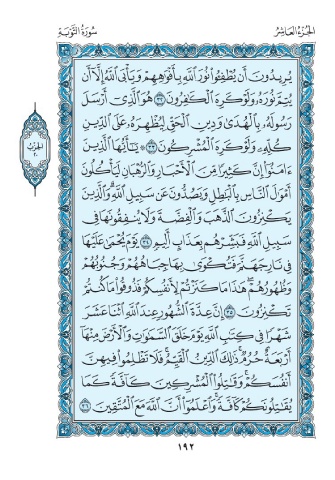 الجزء العاشر
سورة التوبة
يُرِيدُونَ أَن يُطْفِـُٔوا۟ نُورَ ٱللَّهِ بِأَفْوَٰهِهِمْ وَيَأْبَى ٱللَّهُ إِلَّآ أَن
يُتِمَّ نُورَهُۥ وَلَوْ كَرِهَ ٱلْكَٰفِرُونَ ٣٢ هُوَ ٱلَّذِىٓ أَرْسَلَ
رَسُولَهُۥ بِٱلْهُدَىٰ وَدِينِ ٱلْحَقِّ لِيُظْهِرَهُۥ عَلَى ٱلدِّينِ
كُلِّهِۦ وَلَوْ كَرِهَ ٱلْمُشْرِكُونَ ٣٣ يَٰٓأَيُّهَا ٱلَّذِينَ
ءَامَنُوٓا۟ إِنَّ كَثِيرًا مِّنَ ٱلْأَحْبَارِ وَٱلرُّهْبَانِ لَيَأْكُلُونَ
أَمْوَٰلَ ٱلنَّاسِ بِٱلْبَٰطِلِ وَيَصُدُّونَ عَن سَبِيلِ ٱللَّهِ وَٱلَّذِينَ
يَكْنِزُونَ ٱلذَّهَبَ وَٱلْفِضَّةَ وَلَا يُنفِقُونَهَا فِى
سَبِيلِ ٱللَّهِ فَبَشِّرْهُم بِعَذَابٍ أَلِيمٍ ٣٤ يَوْمَ يُحْمَىٰ عَلَيْهَا
فِى نَارِ جَهَنَّمَ فَتُكْوَىٰ بِهَا جِبَاهُهُمْ وَجُنُوبُهُمْ
وَظُهُورُهُمْ هَٰذَا مَا كَنَزْتُمْ لِأَنفُسِكُمْ فَذُوقُوا۟ مَا كُنتُمْ
تَكْنِزُونَ ٣٥ إِنَّ عِدَّةَ ٱلشُّهُورِ عِندَ ٱللَّهِ ٱثْنَا عَشَرَ
شَهْرًا فِى كِتَٰبِ ٱللَّهِ يَوْمَ خَلَقَ ٱلسَّمَٰوَٰتِ وَٱلْأَرْضَ مِنْهَآ
أَرْبَعَةٌ حُرُمٌ ذَٰلِكَ ٱلدِّينُ ٱلْقَيِّمُ فَلَا تَظْلِمُوا۟ فِيهِنَّ
أَنفُسَكُمْ وَقَٰتِلُوا۟ ٱلْمُشْرِكِينَ كَآفَّةً كَمَا
يُقَٰتِلُونَكُمْ كَآفَّةً وَٱعْلَمُوٓا۟ أَنَّ ٱللَّهَ مَعَ ٱلْمُتَّقِينَ ٣٦
الحزب
٢٠
١٩٢